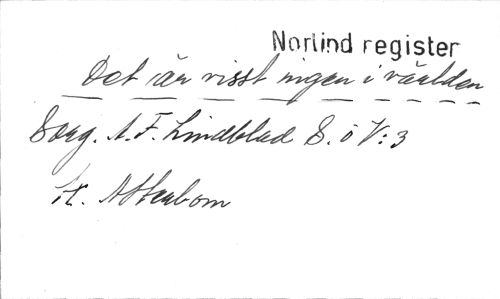 Norlind register
Det är visst ingen i världen
Sång. A.F. Lindblad S. o V: 3
tx. Atterbom